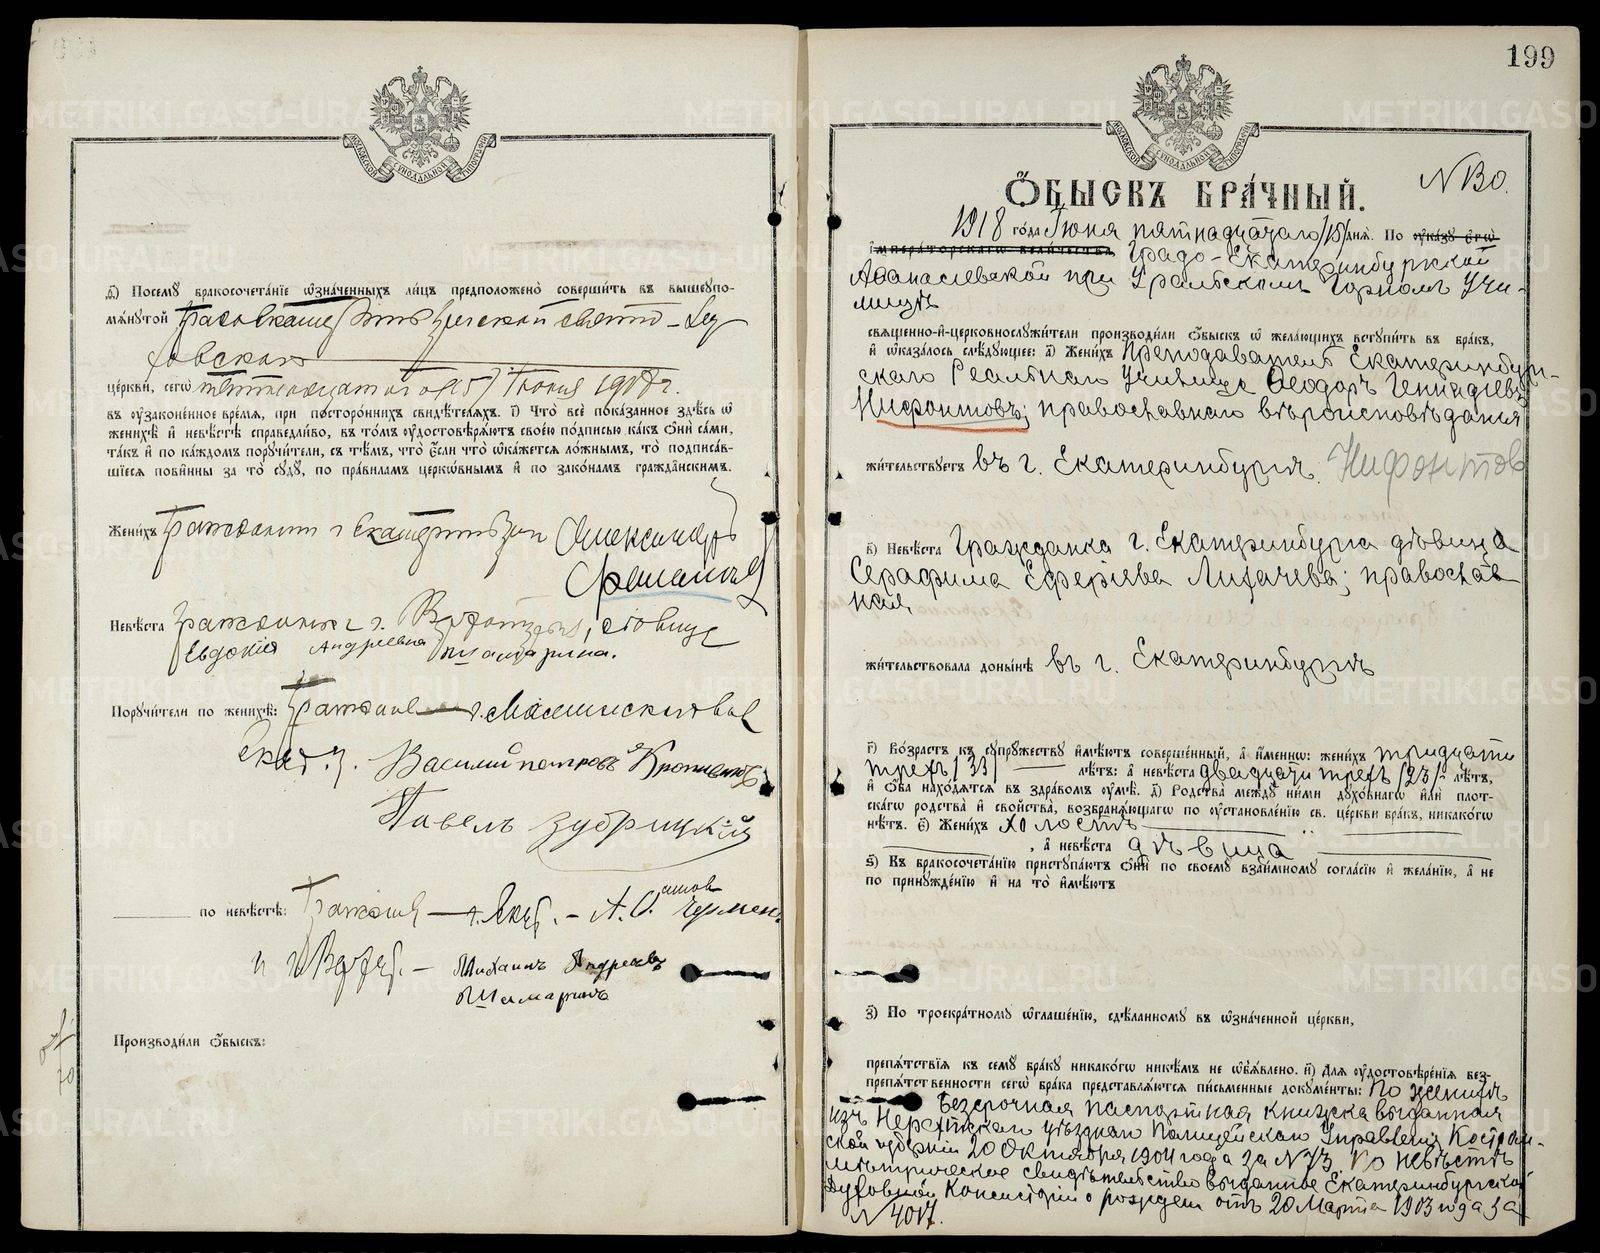 МОСКОВСКОЙ СѴНОДАЛЬНОЙ ТИПОГРАФІИ
д҃) Посему̀ бракосочета́нїе ѡ҆зна́ченныхъ ли́цъ предположено̀ соверши́ть въ вышеупо-
мѧ́нутой Градо Екатеринбургской свято - Ду-
ховской
це́ркви, сегѡ̀ пятнадцатого (15) Іюня 1918 г.
въ ᲂу҆зако́ненное вре́мѧ, при посторо́ннихъ свидѣ́телѧхъ. і҃) Что̀ всѐ пока́занное здѣ́сь ѡ҆
женихѣ̀ и҆ невѣ́стѣ справедли́во, въ то́мъ ᲂу҆достовѣрѧ́ютъ свое́ю по́дписью ка́къ ѻ҆нѝ са́ми,
та́къ и҆ по ка́ждомъ поручи́тели, съ тѣ́мъ, что̀ є҆́сли что̀ ѡ҆ка́жется ло́жнымъ, то̀ подписа́в-
шїесѧ пови́нны за то̀ суду̀, по пра́виламъ церкѡ́внымъ и҆ по зако́намъ гражда́нскимъ.
Жени́хъ Гражданин г Екатеринбурга Александръ
Невѣ́ста гражданка г. , девица
Евдокія Андреевна Шамарина.
Поручи́тели по женихѣ̀:
Екат. у. Василій петровъ
Павелъ Зубрицкій
по невѣ́стѣ: Граждане — г. Екат. — А. О.
и г — Михаилъ Андреевъ
Шамаринъ
Производи́ли ѻ҆бы́скъ:
199
МОСКОВСКОЙ СѴНОДАЛЬНОЙ ТИПОГРАФІИ
№ 30.
Ѻ҆БЫ́СКЪ БРА́ЧНЫЙ.
1918 го́да Іюня пятнадцатаго /15/ днѧ̀. По ᲂу҆ка́зу є҆гѡ̀
і҆мпера́торскагѡ вели́чества, Градо-Екатеринбургской
Аѳанасіевской при Уральскомъ Горномъ Учи-
лищѣ
сщ҃е́нно-и҆-церковнослужи́тели производи́ли ѻ҆бы́скъ ѡ҆ жела́ющихъ вступи́ть въ бра́къ,
и҆ ѡ҆каза́лось слѣ́дующее: а҃) Жени́хъ преподаватель Екатеринбург-
скаго Реальнаго училища Ѳеодоръ Геннадіевъ
Нифонтовъ; православнаго вѣроисповѣданія
жи́тельствуетъ въ г. Екатеринбургѣ. Нифонтов
в҃) Невѣ́ста Гражданка г. Екатеринбурга дѣвица
Серафима Ефреміева Лихачева; православ-
ная,
жи́тельствовала доны́нѣ въ г. Екатеринбургѣ
г҃) Во́зрастъ къ супру́жеству и҆мѣ́ютъ соверше́нный, а҆ и҆́меннѡ: жени́хъ тридцати
трехъ /33/ лѣ́тъ: а҆ невѣ́ста двадцати трехъ /23/ лѣ́тъ,
и҆ ѻ҆́ба нахо́дѧтсѧ въ здра́вомъ ᲂу҆мѣ̀. д҃) Родства̀ ме́жду ни́ми духо́внагѡ и҆лѝ пло́т-
скагѡ родства̀ и҆ сво́йства̀, возбранѧ́ющагѡ по ᲂу҆становле́нїю св. це́ркви бра́къ, никако́гѡ
нѣ́тъ. є҃) Жени́хъ холостъ
, а҆ невѣ́ста дѣвица
ѕ҃) Къ бракосочета́нїю приступа́ютъ ѻ҆нѝ по своему̀ взаи́мному согла́сїю и҆ жела́нїю, а҆ не
по принужде́нїю и҆ на то̀ и҆мѣ́ютъ
з҃) По троекра́тному ѡ҆глаше́нїю, сдѣ́ланному въ ѡ҆зна́ченной це́ркви,
препѧ́тствїѧ къ сему̀ бра́ку никако́гѡ никѣ́мъ не ѡ҆б̾ѧ́влено. и҃) Длѧ̀ ᲂу҆достовѣре́нїѧ без-
препѧ́тственности сегѡ̀ бра́ка представлѧ́ютсѧ пи́сьменные докуме́нты: По женихѣ
Безсрочная паспортная книжка выданная
изъ Нерехтскаго уѣзднаго Полицейскаго Управленія Костром-
ской губерніи 20 Октября 1904 года за № 73. По невѣстѣ
метрическое свидѣтельство выданное Екатеринбургской
Духовной Консисторіи о рожден отъ 20 Марта 1903 года за
№ 4017.
METRIKI.GASO-URAL.RU